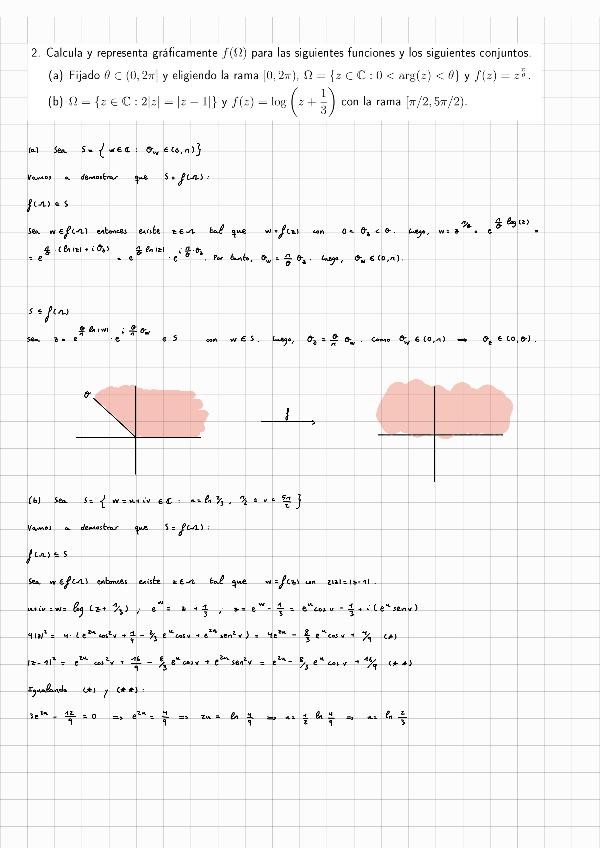 2. Calcula y representa gráficamente f(Ω) para las siguientes funciones y los siguientes conjuntos.
(a) Fijado θ ∈ (0, 2π] y eligiendo la rama [0, 2π), Ω = {z ∈ ℂ : 0 < arg(z) < θ} y f(z) = z^{π/θ}.
(b) Ω = {z ∈ ℂ : 2|z| = |z − 1|} y f(z) = log(z + 1/3) con la rama [π/2, 5π/2).
(a) Sea S = { w ∈ ℂ : θ_w ∈ (0, π) }
Vamos a demostrar que S = f(Ω):
f(Ω) ⊆ S
Sea w ∈ f(Ω) entonces existe z ∈ Ω tal que w = f(z) con 0 < θ_z < θ. Luego, w = z^{π/θ} = e^{π/θ log(z)} =
= e^{π/θ (ln|z| + iθ_z)} = e^{π/θ ln|z|} · e^{i π/θ · θ_z}. Por tanto, θ_w = π/θ θ_z. Luego, θ_w ∈ (0, π).
S ⊆ f(Ω)
Sea z = e^{θ/π ln|w|} · e^{i θ/π θ_w} ∈ S con w ∈ S. Luego, θ_z = θ/π θ_w. Como θ_w ∈ (0, π) → θ_z ∈ (0, θ).
θ
f
(b) Sea S = { w = u + iv ∈ ℂ : u = ln 2/3, π/2 ≤ v < 5π/2 }
Vamos a demostrar que S = f(Ω):
f(Ω) ⊆ S
Sea w ∈ f(Ω) entonces existe z ∈ Ω tal que w = f(z) con 2|z| = |z − 1|.
u + iv = w = log (z + 1/3), e^w = z + 1/3, z = e^w − 1/3 = e^u cos v − 1/3 + i (e^u sen v)
4|z|² = 4 · (e^{2u} cos² v + 1/9 − 2/3 e^u cos v + e^{2u} sen² v) = 4e^{2u} − 8/3 e^u cos v + 4/9 (*)
|z − 1|² = e^{2u} cos² v + 16/9 − 8/3 e^u cos v + e^{2u} sen² v = e^{2u} − 8/3 e^u cos v + 16/9 (**)
Igualando (*) y (**):
3e^{2u} − 12/9 = 0 ⇒ e^{2u} = 4/9 ⇒ 2u = ln 4/9 ⇒ u = 1/2 ln 4/9 ⇒ u = ln 2/3